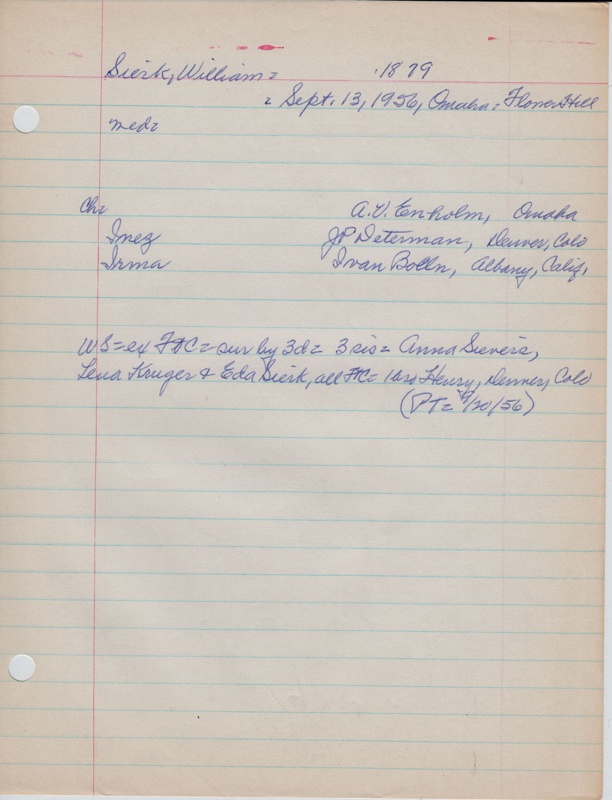 Sierk, William = 1879
= Sept. 13, 1956, Omaha: Flower Hill
med=
ch= A.V. Enholm, Omaha
Inez J.P. Determan, Denver, Colo
Irma Ivan Bolln, Albany, Calif,
WS=ex FtC= sur by 3d= 3 sis= Anna Sievers,
Lena Kruger & Eda Sierk, all FtC= 1 bro Henry, Denver, Colo
(PT= 9/20/56)